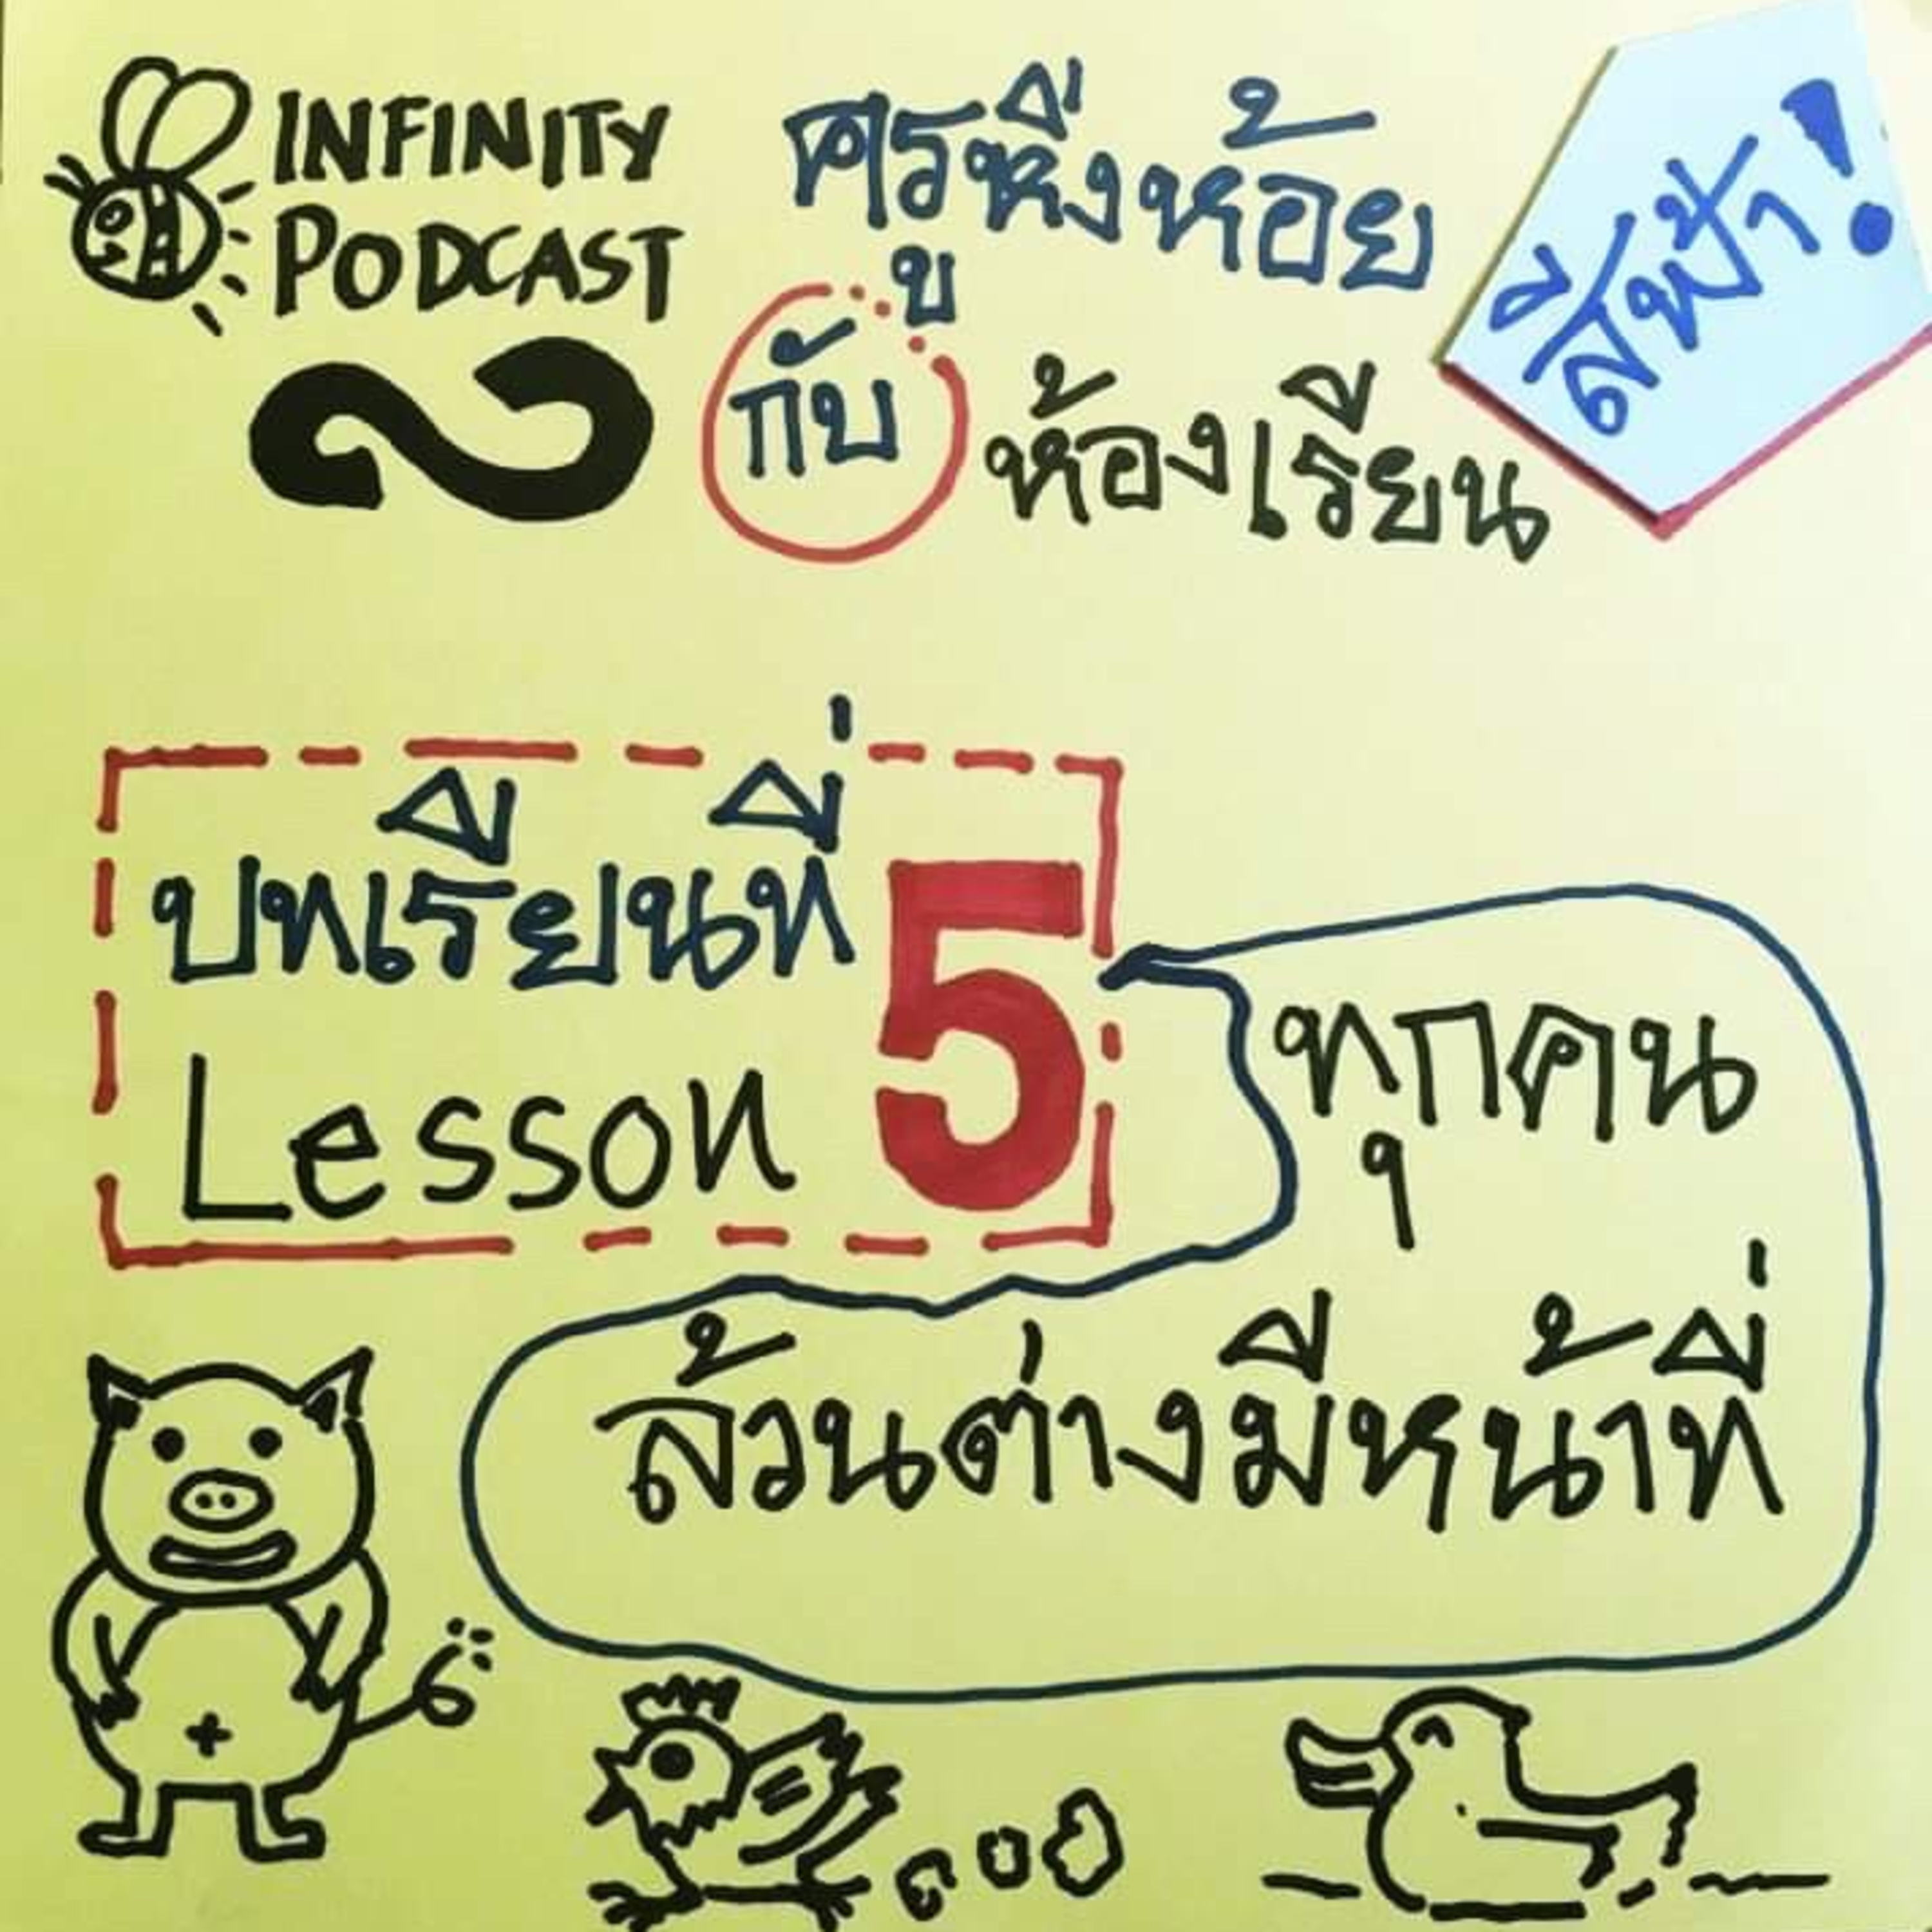 INFINITY
PODCAST
ครูหิ่งห้อย
กับ ห้องเรียน
สีฟ้า!
บทเรียนที่ 5
Lesson
ทุกคน
ล้วนต่างมีหน้าที่